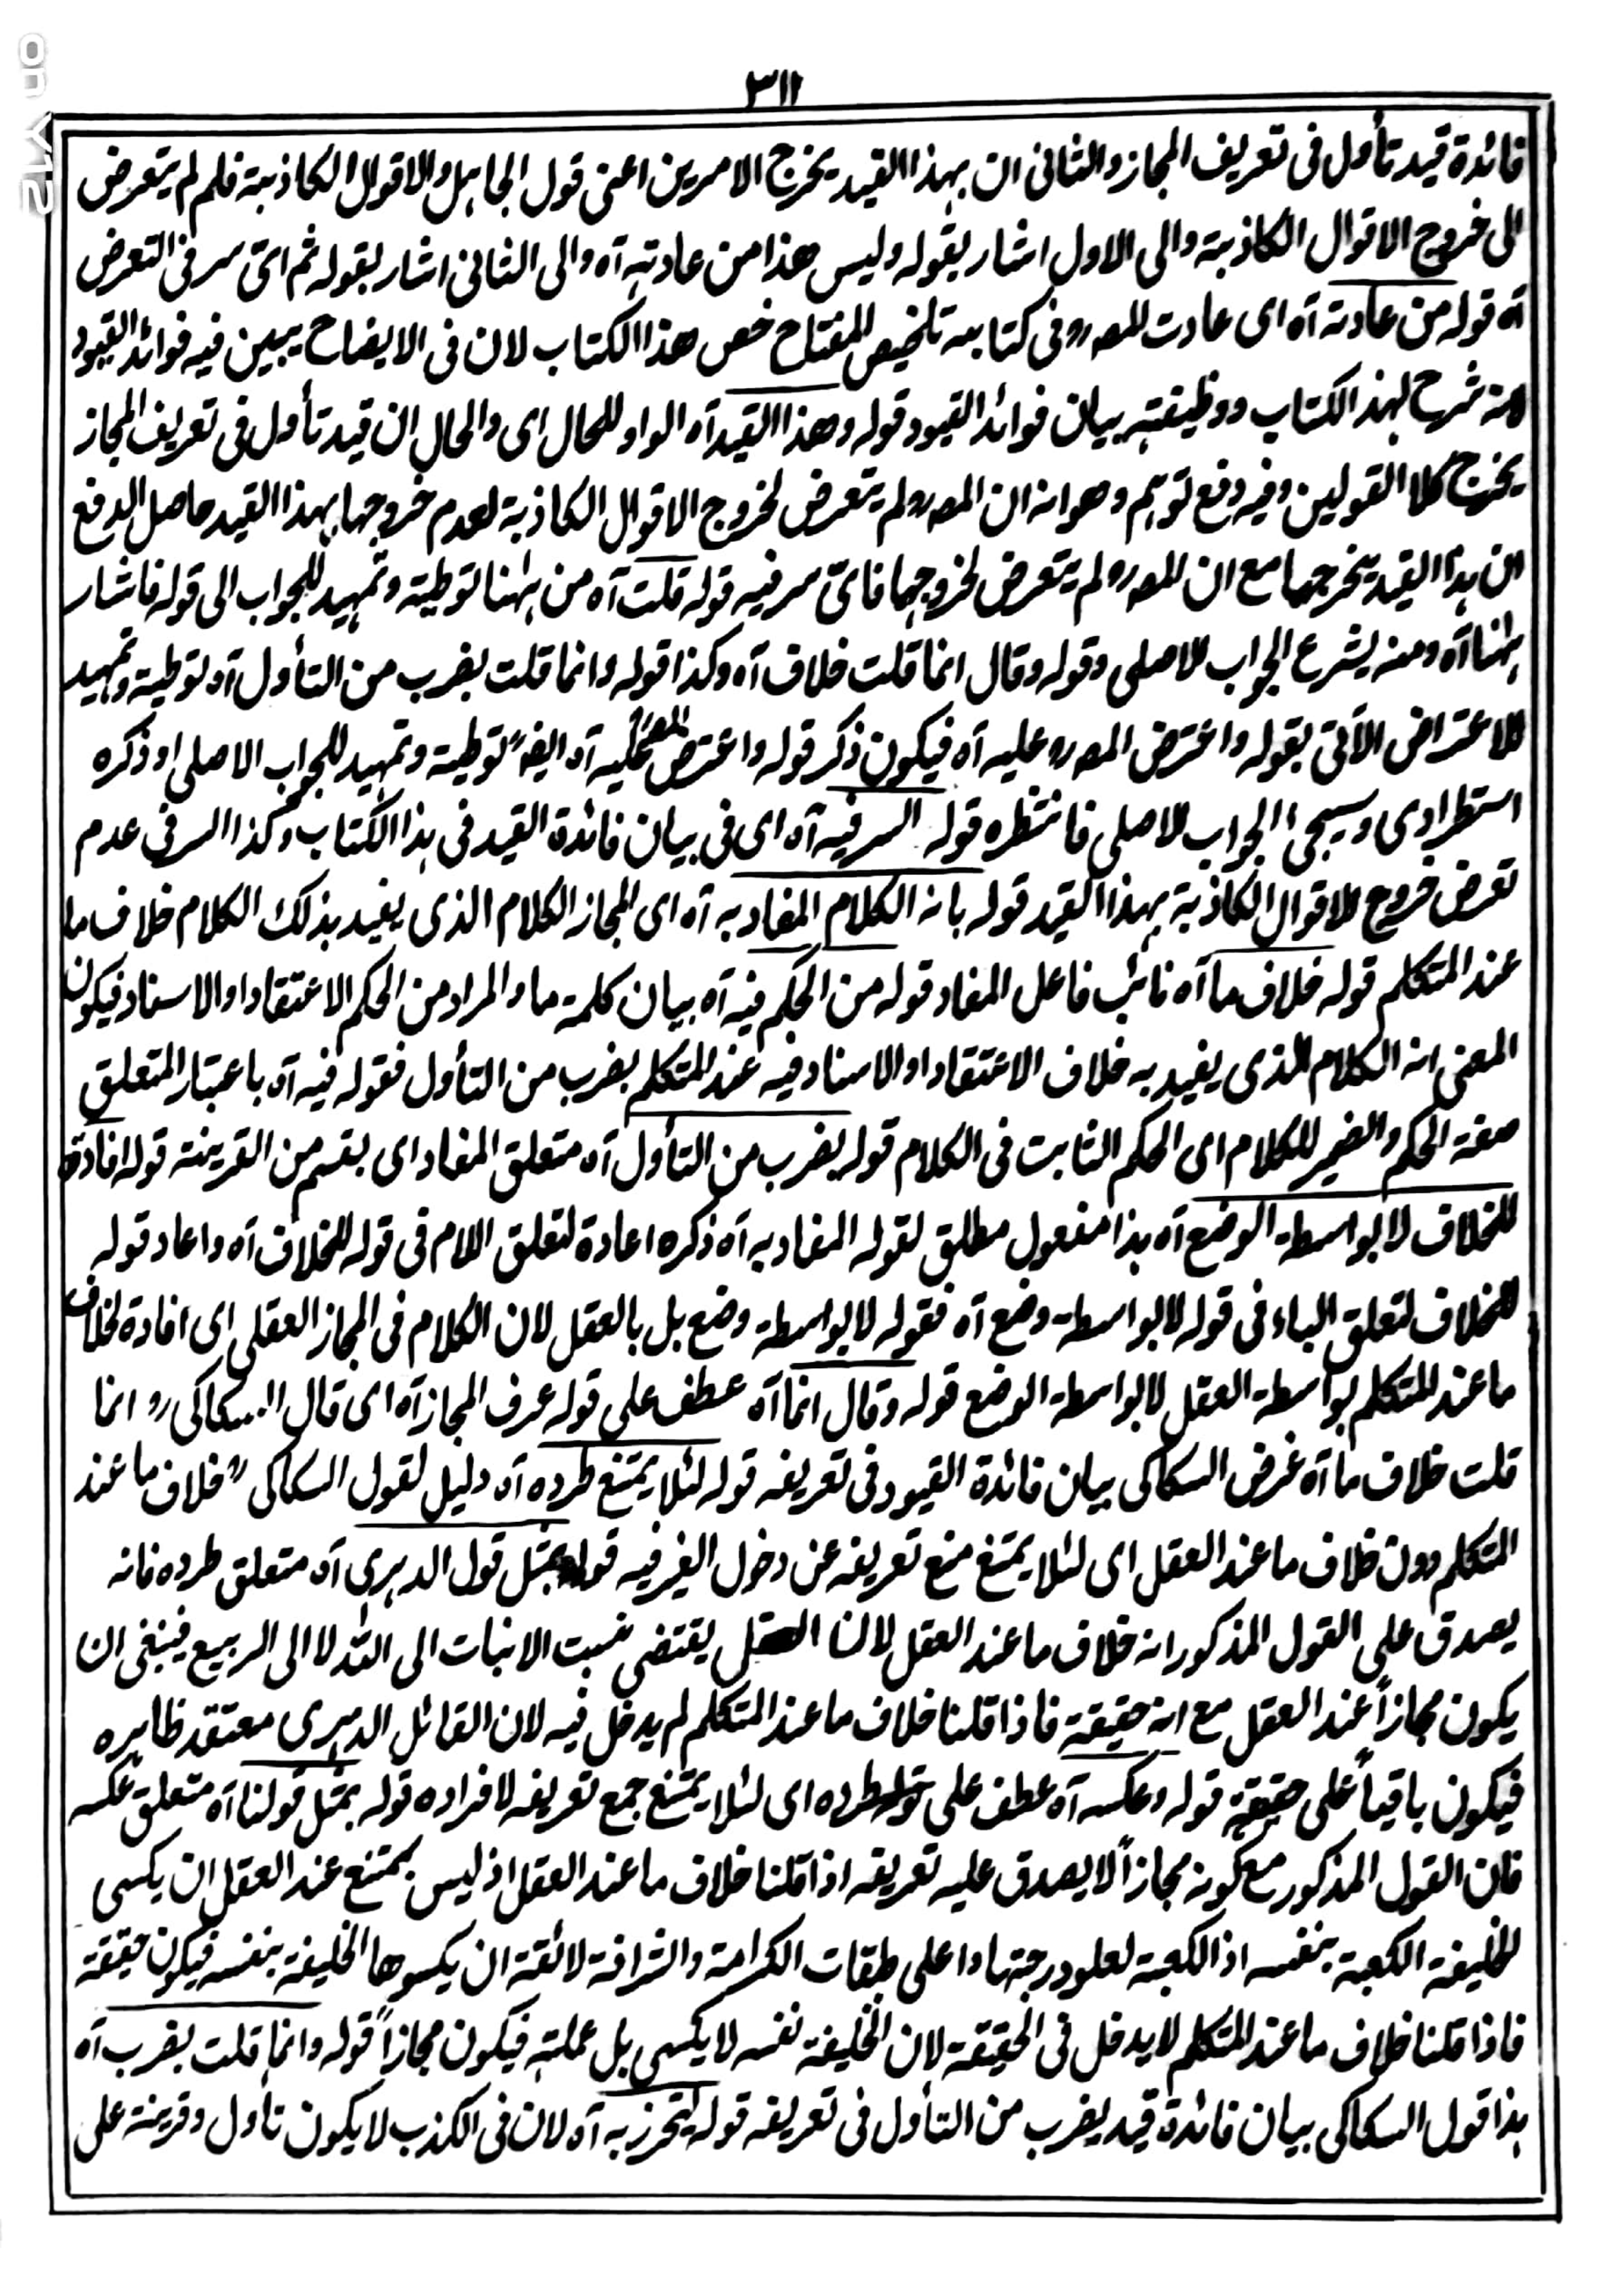 ٣١١
فائدة قيد تأول فى تعريف المجاز والثانى ان بهذا القيد يخرج الامرين اعنى قول الجاهل والاقوال الكاذبة فلم لم يتعرض
الى خروج الاقوال الكاذبة والى الاول اشار بقوله وليس هذا من عادته آه والى الثانى اشار بقوله ثم اىّ سر فى التعرض
آه قوله من عادته آه اى عادت المصرو فى كتابه تلخيص المفتاح خص هذا الكتاب لان فى الايضاح يبين فيه فوائد القيود
شرح لهذ الكتاب ووظيفته بيان فوائد القيود قوله وهذا القيد آه الواو للحال اى والحال ان قيد تأول فى تعريف المجاز
يخرج كلا القولين وفيه دفع توهم وهو انه ان المصرو لم يتعرض لخروج الاقوال الكاذبة لعدم خروجها بهذا القيد حاصل الدفع
ان هذا القيد يخرجهما مع ان المصرو لم يتعرض لخروجها فاىّ سر فيه قوله قلت آه من ههنا توطية وتمهيد للجواب الى قوله فاشار
ههنا آه ومنه يشرع الجواب الاصلى وقوله وقال انما قلت خلاف آه وكذا قوله وانما قلت بضرب من التأول آه توطية وتمهيد
للاعتراض الآتى بقوله واعترض المصرو عليه آه فيكون ذكر قوله واعترض المصرو عليه آه ايضً توطية وتمهيد للجواب الاصلى او ذكره
استطرادى وسيجئ الجواب الاصلى فانتظره قوله السر فيه آه اى فى بيان فائدة القيد فى هذا الكتاب وكذا السر فى عدم
تعرض خروج الاقوال الكاذبة بهذا القيد قوله بانه الكلام المفاد به آه اى المجاز الكلام الذى يفيد بذلك الكلام خلاف ما
عند المتكلم قوله خلاف ما آه نائب فاعل المفاد قوله من الحكم فيه آه بيان كلمة ما والمراد من الحكم الاعتقاد او الاسناد فيكون
المعنى انه الكلام الذى يفيد به خلاف الاعتقاد او الاسناد فيه عند المتكلم بضرب من التأول فقوله فيه آه باعتبار المتعلق
صفة الحكم والضمير للكلام اى الحكم الثابت فى الكلام قوله بضرب من التأول آه متعلق المفاد اى بقسم من القرينة قوله افادة
للخلاف لا بواسطة الوضع آه هذا مفعول مطلق لقوله المفاد به آه ذكره اعادة لتعلق اللام فى قوله للخلاف آه واعاد قوله
للخلاف لتعلق الباء فى قوله لا بواسطة وضع آه فقوله لا بواسطة وضع بل بالعقل لان الكلام فى المجاز العقلى اى افادة لخلاف
ما عند المتكلم بواسطة العقل لا بواسطة الوضع قوله وقال انما آه عطف على قوله عرف المجاز آه اى قال السكاكى رو انما
قلت خلاف ما آه غرض السكاكى بيان فائدة القيود فى تعريفه قوله لئلا يمتنع طرده آه دليل لقول السكاكى رو خلاف ما عند
المتكلم دون خلاف ما عند العقل اى لئلا يمتنع منع تعريفه عن دخول الغير فيه قوله بمثل قول الدهرى آه متعلق طرده فانه
يصدق على القول المذكور انه خلاف ما عند العقل لان العقل يقتضى نسبت الانبات الى الله لا الى الربيع فينبغى ان
يكون مجازاً عند العقل مع انه حقيقة فاذا قلنا خلاف ما عند المتكلم لم يدخل فيه لان القائل الدهرى معتقد ظاهره
فيكون باقياً على حقيقة قوله وعكسه آه عطف على قوله طرده اى لئلا يمتنع جمع تعريفه لافراده قوله بمثل قولنا آه متعلق عكسه
فان القول المذكور مع كونه مجازاً لا يصدق عليه تعريفه اذا قلنا خلاف ما عند العقل اذ ليس بممتنع عند العقل ان يكسى
الخليفة الكعبة بنفسه اذ الكعبة لعلو درجتها واعلى طبقات الكرامة والشرافة لائقة ان يكسوها الخليفة بنفسه فيكون حقيقة
فاذا قلنا خلاف ما عند المتكلم لا يدخل فى الحقيقة لان الخليفة نفسه لا يكسى بل عملته فيكون مجازاً قوله وانما قلت بضرب آه
هذا قول السكاكى بيان فائدة قيد بضرب من التأول فى تعريفه قوله ليتحرز به آه لان فى الكذب لا يكون تأول وقرينة على